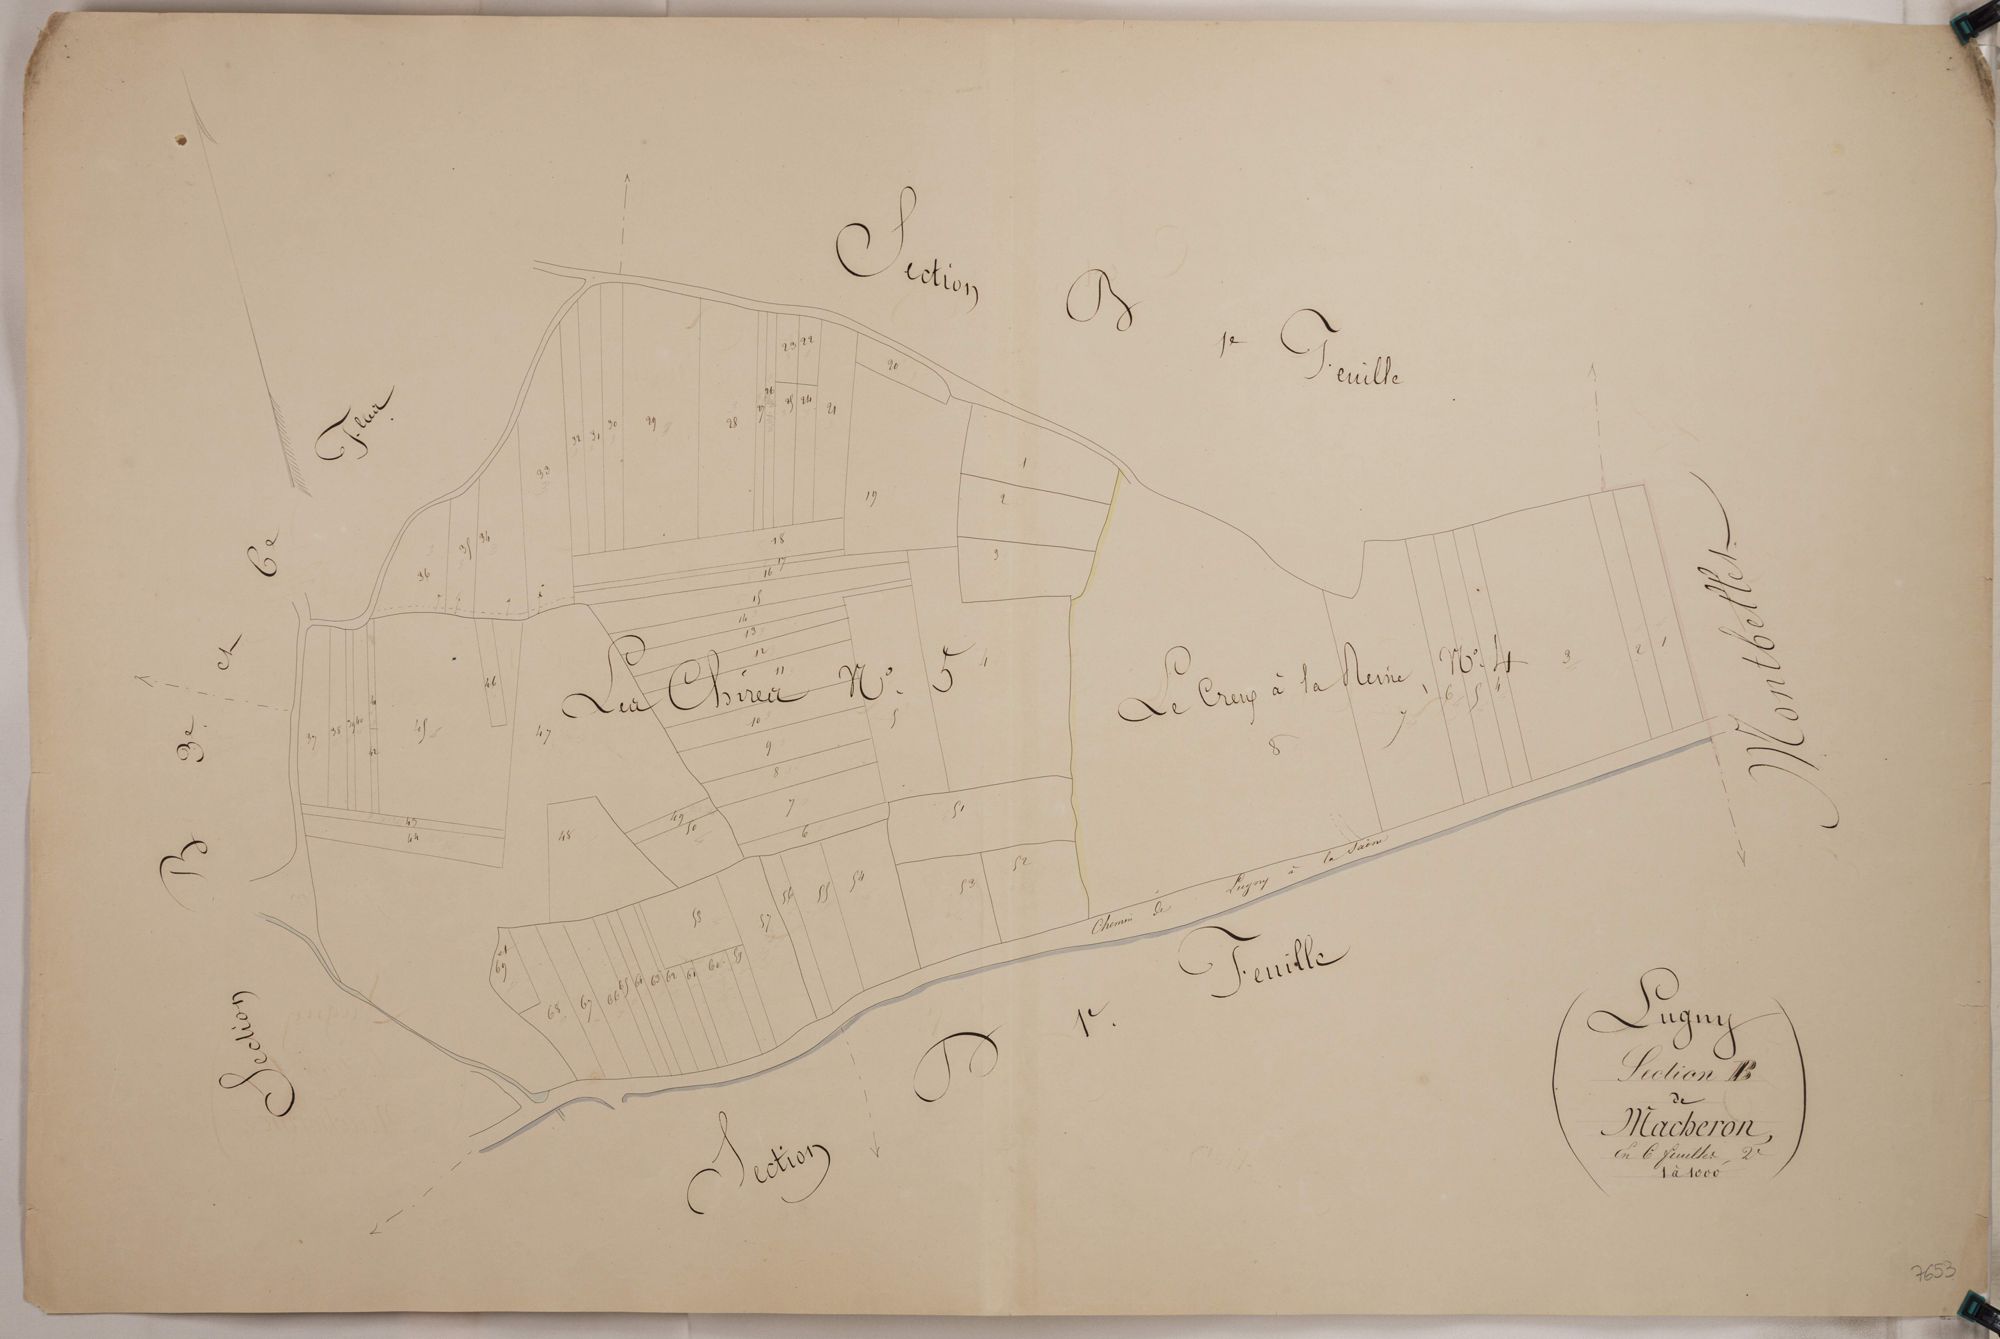 Section B 1e Feuille
B 3e et 6e
Section
Les Chirea No. 5
Le Creux à la Reine, No. 4
Montbellet
Chemin de Lugny à la Saône
Section D 1e. Feuille
23 22
20
26
27
25 24
21
32 31 30 29 28
33
19
1
2
3
18
17
16
15
14
13
12
11
10
9
8
7
6
5
4
36 35 34
37 38 39 40
42
45
46
47
43
44
48
49
50
51
52
53
54
55
56
57
58
59
60
61
62
63
64
65
66
67
68
69
8
7
6 5 4
3
2 1
Lugny
Section B
de
Macheron,
en 6 feuilles 2e
1 à 1000
7653